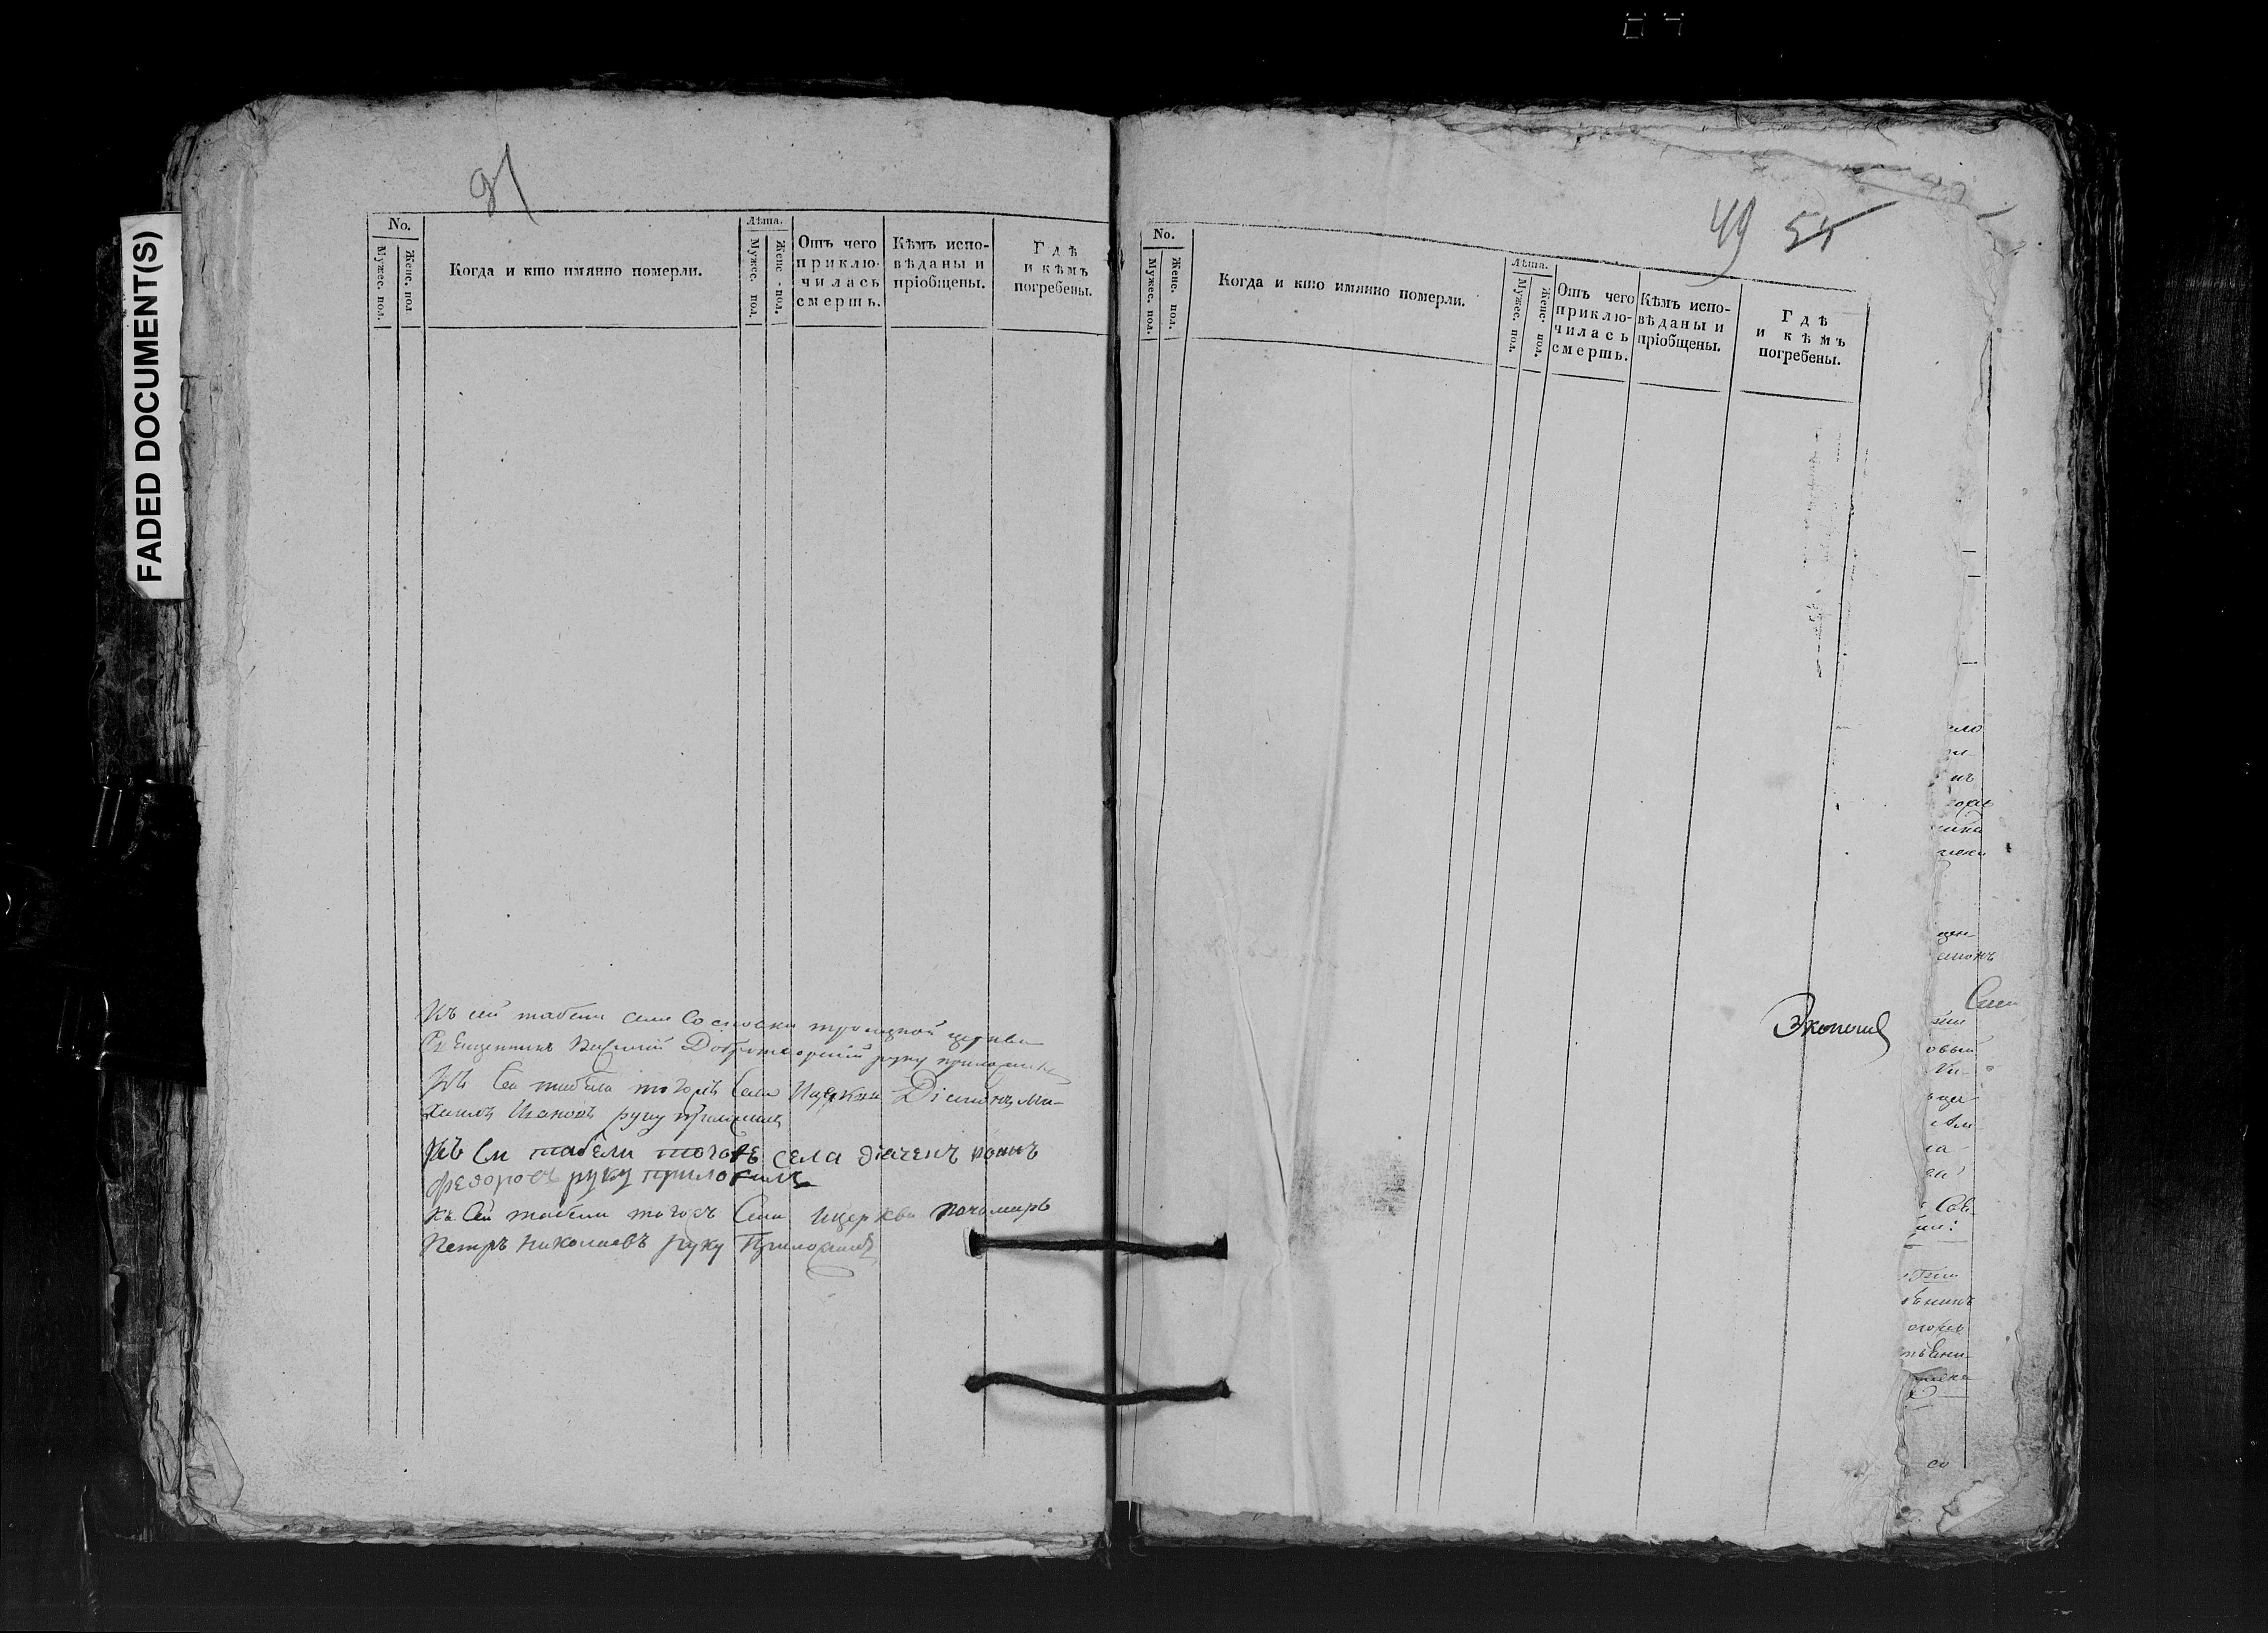 FADED DOCUMENT(S)
91
No.
Мужес. пол.
Женс. пол.
Когда и кто имянно померли.
Лѣта.
Мужес. пол.
Женс. пол.
Отъ чего
приклю-
чилась
смерть.
Кѣмъ испо-
вѣданы и
пріобщены.
Гдѣ
и кѣмъ
погребены.
Къ сей табели села Сосновки троицкой церкви
Священникъ Василий Добротворский руку приложилъ
Къ Сей табели тогожъ Села Церкви Діаконъ Ми-
хаилъ Ивановъ руку приложилъ
Къ Си табели тогожъ села діаченъ
федоровъ руку приложилъ
Къ Сей табели тогожъ Села ицеркви пономарь
Петръ Николаевъ руку Приложилъ
49 54
No.
Мужес. пол.
Женс. пол.
Когда и кто имянно померли.
Лѣта.
Мужес. пол.
Женс. пол.
Отъ чего
приклю-
чилась
смерть.
Кѣмъ испо-
вѣданы и
пріобщены.
Гдѣ
и кѣмъ
погребены.